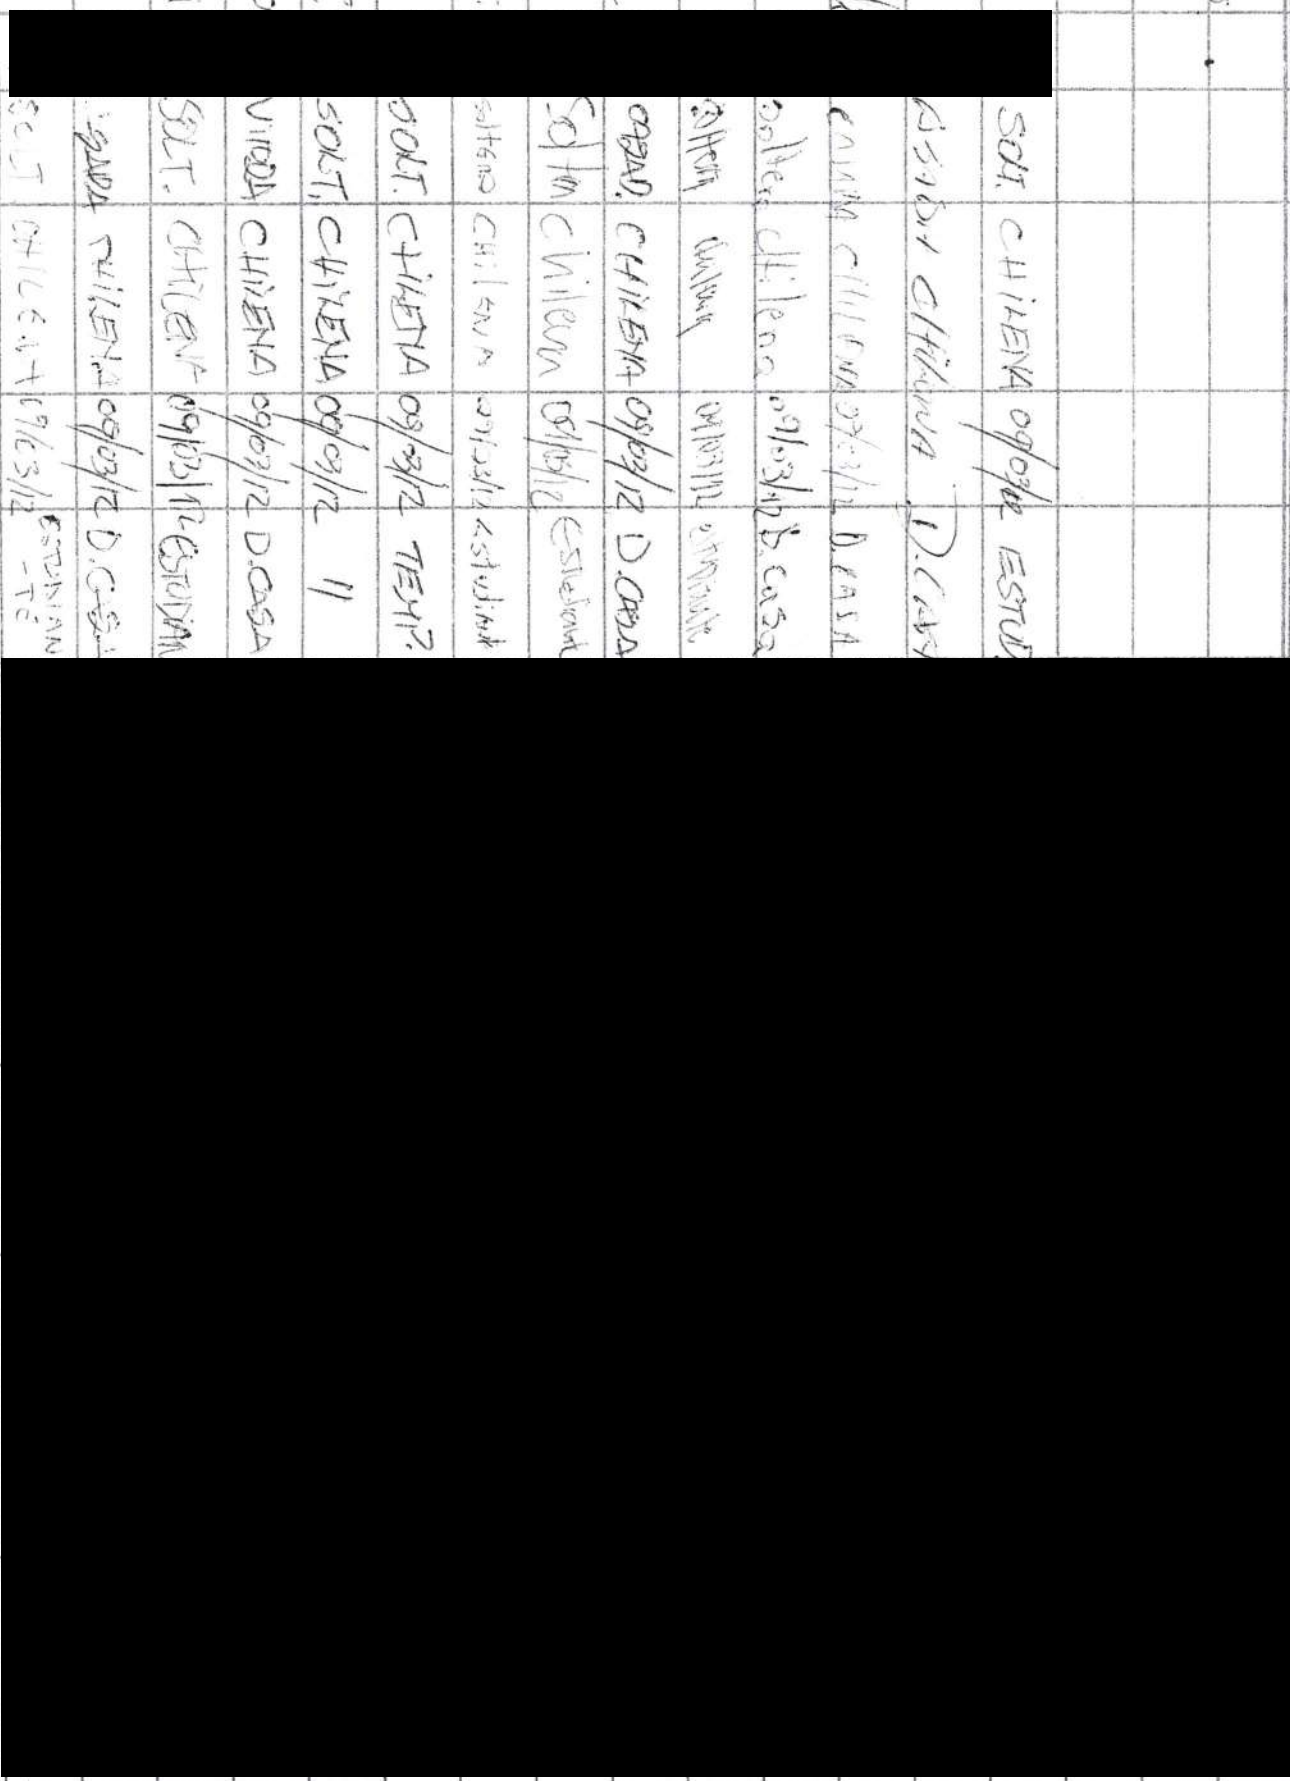 SOLT. CHILENA 09/03/12 ESTUD
CHILENA D. CASA
CHILENA 09/03/12 D. CASA
Soltera Chilena 09/03/12 D. Casa
Soltera 09/03/12
CASAD. CHILENA 09/03/12 D. CASA
Chilena 09/03/12 Estudiante
soltero CHILENA 09/03/12 Estudiant
SOLT. CHILENA 09/03/12 TEMP.
SOLT. CHILENA 09/03/12 "
VIUDA CHILENA 09/03/12 D. CASA
SOLT. CHILENA 09/03/12 ESTUDIAN
CHILENA 09/03/12 D. CASA
SOLT CHILENA 09/03/12 ESTUDIAN
-TE